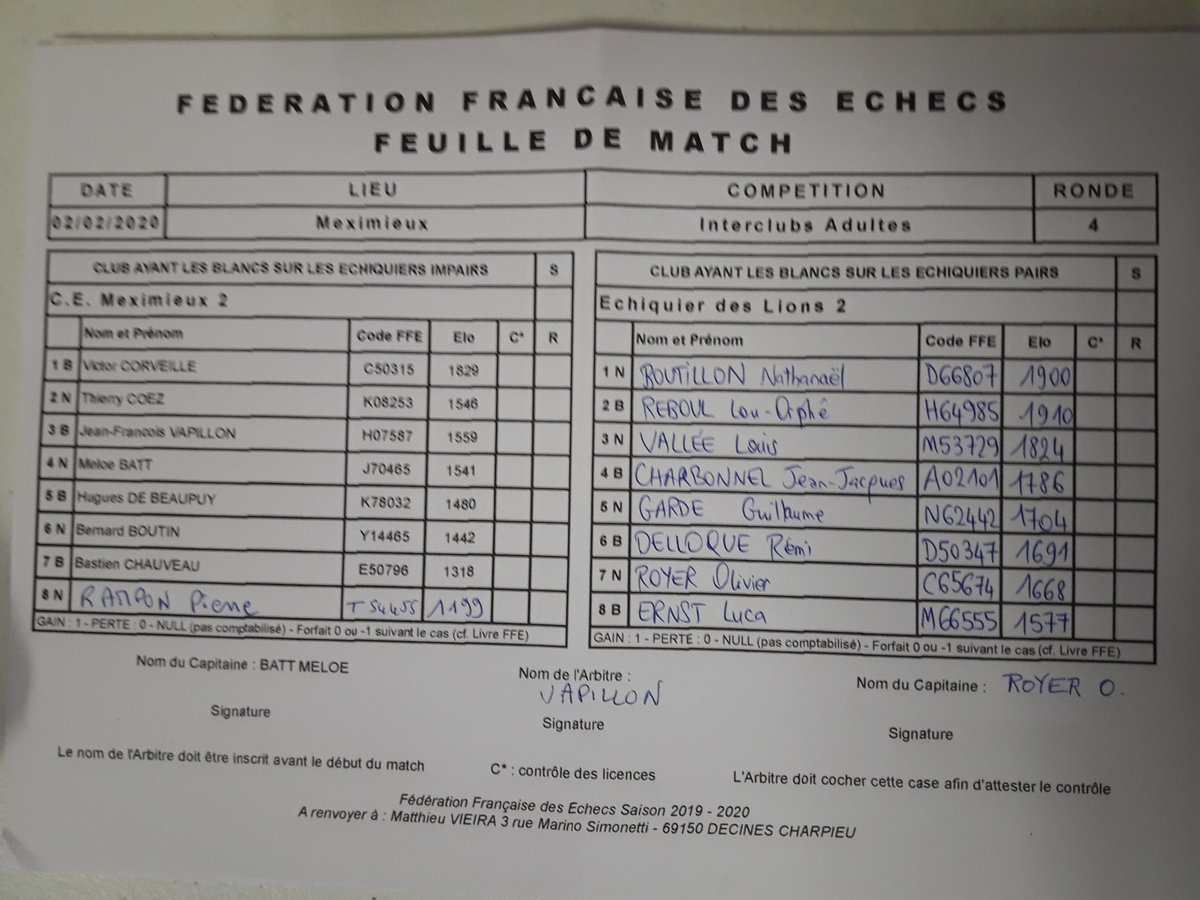 FEDERATION FRANCAISE DES ECHECS
FEUILLE DE MATCH
DATE LIEU COMPETITION RONDE
02/02/2020 Meximieux Interclubs Adultes 4
CLUB AYANT LES BLANCS SUR LES ECHIQUIERS IMPAIRS S
C.E. Meximieux 2
Nom et Prénom Code FFE Elo C* R
1 B Victor CORVEILLE C50315 1829
2 N Thierry COEZ K08253 1546
3 B Jean-Francois VAPILLON H07587 1559
4 N Meloe BATT J70465 1541
5 B Hugues DE BEAUPUY K78032 1480
6 N Bernard BOUTIN Y14465 1442
7 B Bastien CHAUVEAU E50796 1318
8 N RAMPON Pierre T54455 1199
GAIN : 1 - PERTE : 0 - NULL (pas comptabilisé) - Forfait 0 ou -1 suivant le cas (cf. Livre FFE)
CLUB AYANT LES BLANCS SUR LES ECHIQUIERS PAIRS S
Echiquier des Lions 2
Nom et Prénom Code FFE Elo C* R
1 N BOUTILLON Nathanaël D66807 1900
2 B REBOUL Lou-Orphé H64985 1910
3 N VALLÉE Louis M53729 1824
4 B CHARBONNEL Jean-Jacques A02101 1786
5 N GARDE Guilhaume N62442 1704
6 B DELLOQUE Rémi D50347 1691
7 N ROYER Olivier C65674 1668
8 B ERNST Luca M66555 1577
GAIN : 1 - PERTE : 0 - NULL (pas comptabilisé) - Forfait 0 ou -1 suivant le cas (cf. Livre FFE)
Nom du Capitaine : BATT MELOE
Signature
Nom de l'Arbitre :
VAPILLON
Signature
Nom du Capitaine : ROYER O.
Signature
Le nom de l'Arbitre doit être inscrit avant le début du match
C* : contrôle des licences
L'Arbitre doit cocher cette case afin d'attester le contrôle
Fédération Française des Echecs Saison 2019 - 2020
A renvoyer à : Matthieu VIEIRA 3 rue Marino Simonetti - 69150 DECINES CHARPIEU